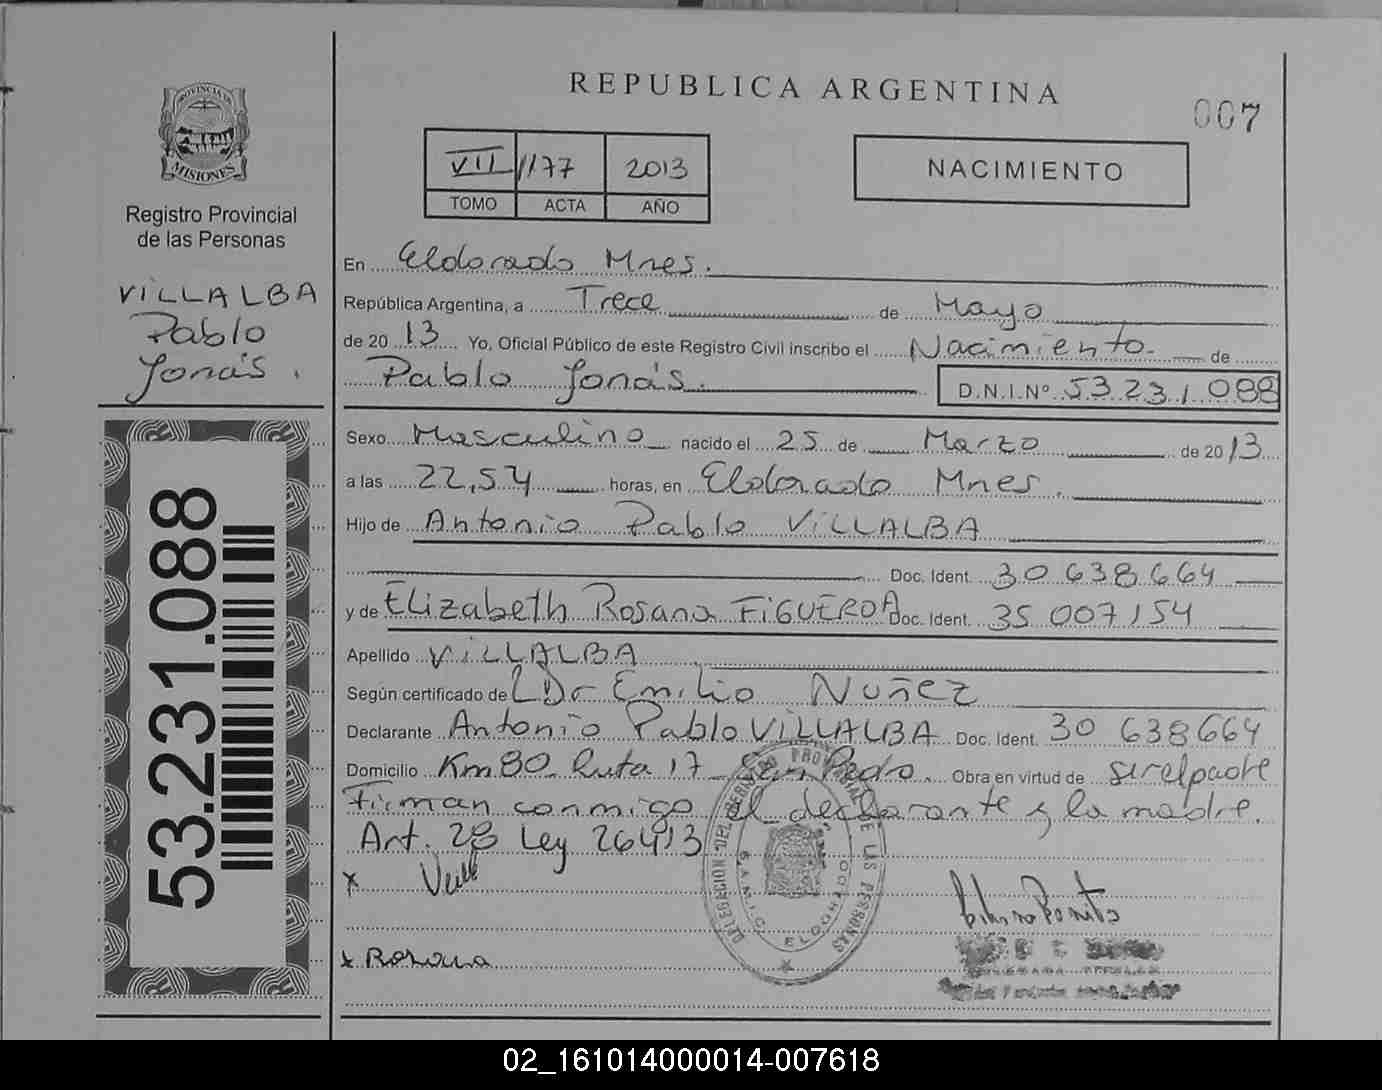 REPUBLICA ARGENTINA
007
PROVINCIA DE
MISIONES
Registro Provincial
de las Personas
VILLALBA
Pablo
Jonás.
53.231.088
VII 1177 2013
TOMO ACTA AÑO
NACIMIENTO
En Eldorado Mnes.
República Argentina, a Trece de Mayo
de 2013 Yo, Oficial Público de este Registro Civil inscribo el Nacimiento de
Pablo Jonás. D.N.I.Nº 53.231.088
Sexo Masculino nacido el 25 de Marzo de 2013
a las 22,54 horas, en Eldorado Mnes.
Hijo de Antonio Pablo VILLALBA
Doc. Ident. 30 638 664
y de Elizabeth Rosana FIGUEROA Doc. Ident. 35 007 154
Apellido VILLALBA
Según certificado de Dr Emilio Nuñez
Declarante Antonio Pablo VILLALBA Doc. Ident. 30 638 664
Domicilio Km 80 Ruta 17 San Pedro. Obra en virtud de ser el padre
Firman conmigo el declarante y la madre.
Art. 28 Ley 26413
x
x Rosana
DELEGACION DEL REGISTRO PROVINCIAL DE LAS PERSONAS
S.A.M.I.C. ELDORADO
02_161014000014-007618